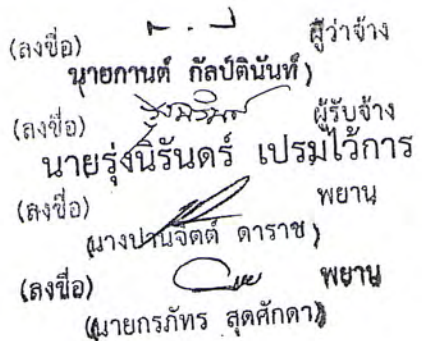 (ลงชื่อ) ผู้ว่าจ้าง
นายกานต์ กัลป์ตินันท์)
(ลงชื่อ) ผู้รับจ้าง
นายรุ่งนิรันดร์ เปรมไว้การ
(ลงชื่อ) พยาน
(นางปานจิตต์ ดาราช)
(ลงชื่อ) พยาน
(นายกรภัทร สุดศักดา)